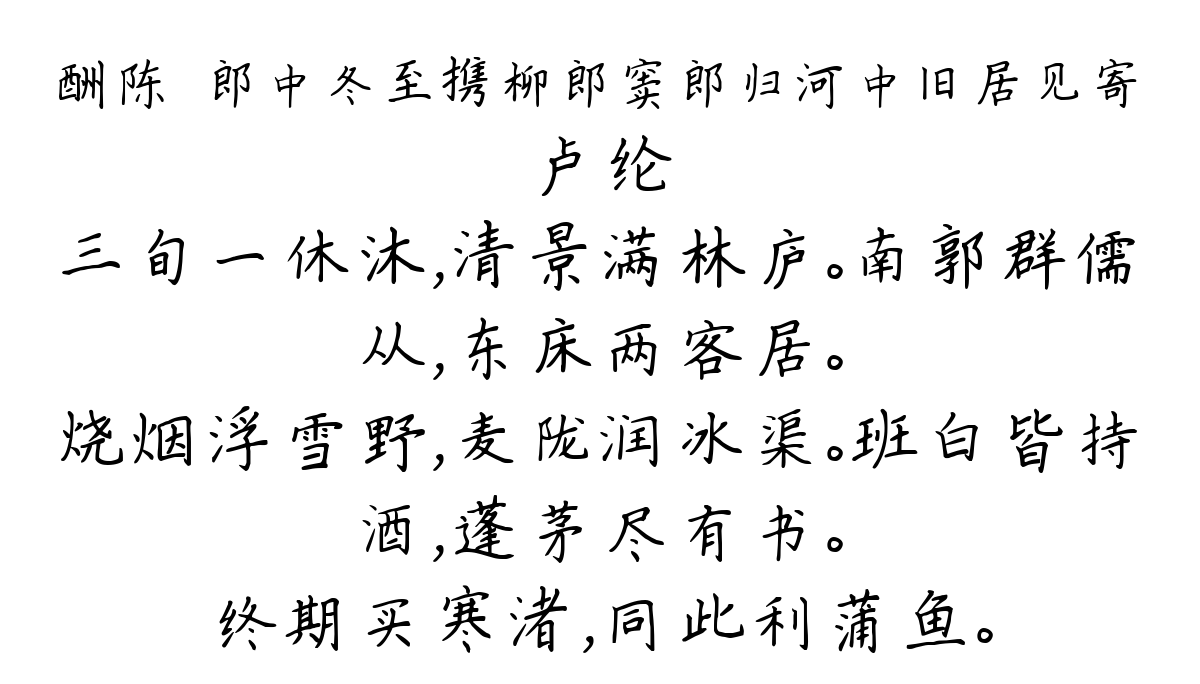 酬陈 郎中冬至携柳郎窦郎归河中旧居见寄
卢纶
三旬一休沐,清景满林庐。南郭群儒
从,东床两客居。
烧烟浮雪野,麦陇润冰渠。班白皆持
酒,蓬茅尽有书。
终期买寒渚,同此利蒲鱼。